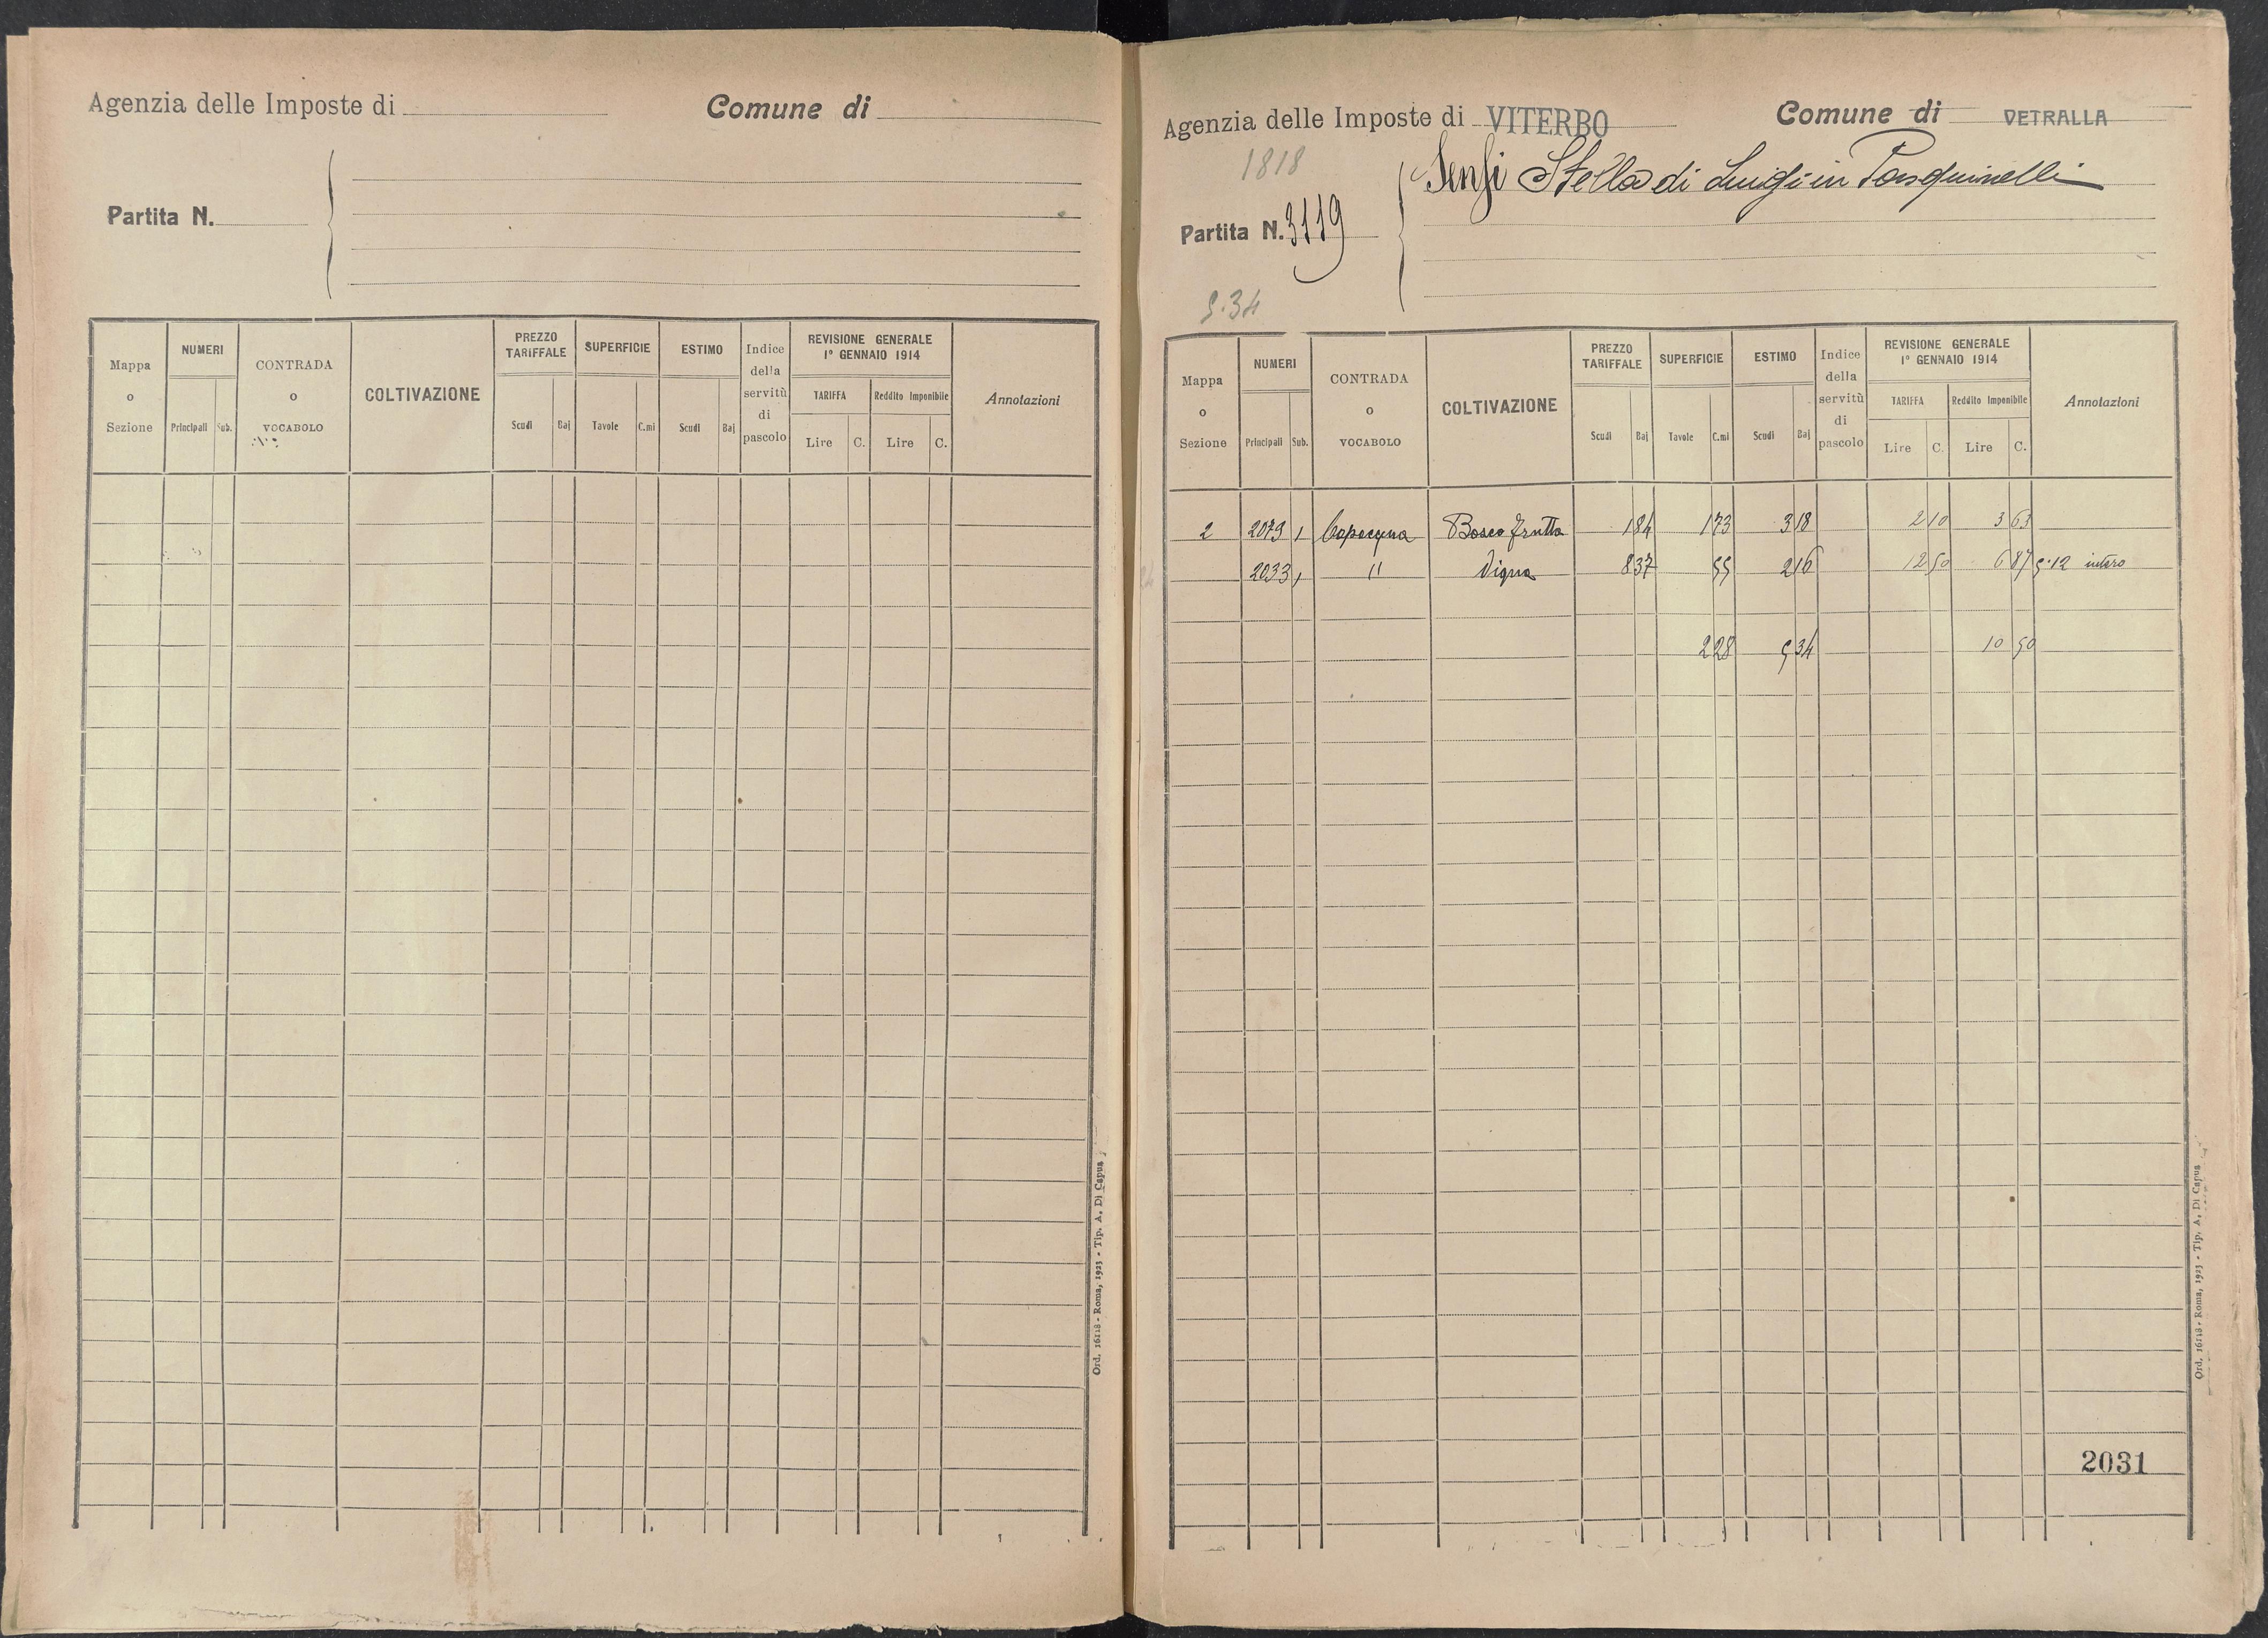 Agenzia delle Imposte di
Comune di
Partita N.
Mappa o Sezione
NUMERI
Principali Sub.
CONTRADA o VOCABOLO
COLTIVAZIONE
PREZZO TARIFFALE
Scudi Baj
SUPERFICIE
Tavole C.mi
ESTIMO
Scudi Baj
Indice della servitù di pascolo
REVISIONE GENERALE
1° GENNAIO 1914
TARIFFA
Lire C.
Reddito Imponibile
Lire C.
Annotazioni
Ord. 16118 - Roma, 1923 - Tip. A. Di Capua
Agenzia delle Imposte di VITERBO
Comune di VETRALLA
1818
Sensi Stella di Luigi in Pasquinelli
Partita N. 3119
5.34
Mappa o Sezione
NUMERI
Principali Sub.
CONTRADA o VOCABOLO
COLTIVAZIONE
PREZZO TARIFFALE
Scudi Baj
SUPERFICIE
Tavole C.mi
ESTIMO
Scudi Baj
Indice della servitù di pascolo
REVISIONE GENERALE
1° GENNAIO 1914
TARIFFA
Lire C.
Reddito Imponibile
Lire C.
Annotazioni
2 2079 1 Bosco frutto 1 84 1 73 3 18 2 10 3 63
2033 1 " Vigna 8 37 55 2 16 12 50 6 87 5.12 intero
2 28 5 34 10 50
2031
Ord. 16118 - Roma, 1923 - Tip. A. Di Capua